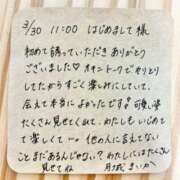 3/30 11:00 はじめまして様
初めて誘っていただきありがとう
ございました♡オキニトークでやりとり
してたからすごく楽しみにしていて、
会えて本当によかったです!可愛い姿
たくさん見せてくれて、わたしもいじめて
て楽しくて…。他の人に言えてない
ことまだあるんじゃない?わたしにはたくさん
見せてね